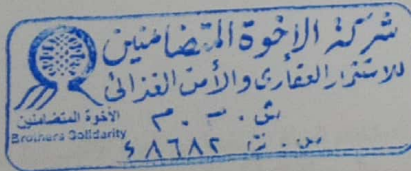 شركة الإخوة المتضامنين
للاستثمار العقاري والأمن الغذائي
ش.م.م
س.ت ٤٨٦٨٢
الأخوة المتضامنين
Brothers Solidarity